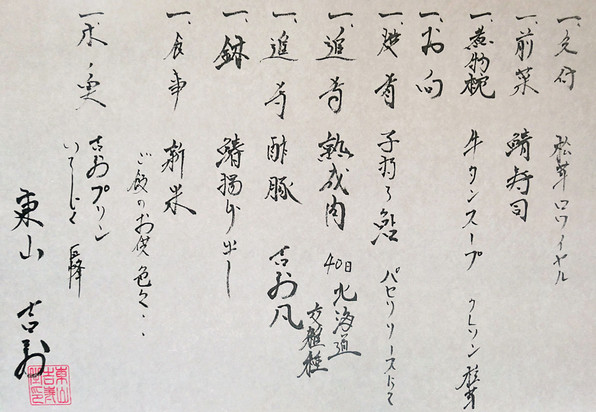 一、先付 松茸ロワイヤル
一、前菜 鯖寿司
一、煮物椀 牛タンスープ クレソン 松茸
一、お向
一、焼肴 子持ち鮎 パセリソースにて
一、追肴 熟成肉 40日 北海道
一、追肴 酢豚 吉寿風
一、鉢 鱧揚げ出し
一、食事 新米
ご飯のお供色々・・
一、水菓 吉寿プリン
いちじく 巨峰
東山 吉寿